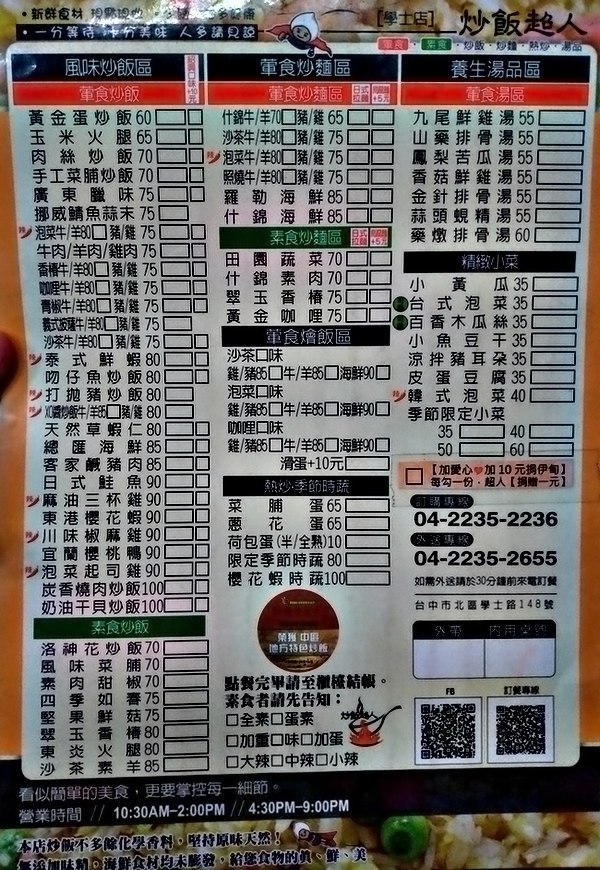 •新鮮食材 現點現炒
•一分等待 十分美味 人多請見諒
[學士店] 炒飯超人
葷食 · 素食 · 炒飯 · 炒麵 · 熱炒 · 湯品
風味炒飯區
葷食炒飯
黃金蛋炒飯 60
玉米火腿 65
肉絲炒飯 70
手工菜脯炒飯 70
廣東臘味 75
挪威鯖魚蒜末 75
辣 泡菜牛/羊80 豬/雞 75
牛肉/羊肉/雞肉 75
香椿牛/羊80 豬/雞 75
咖哩牛/羊80 豬/雞 75
青椒牛/羊80 豬/雞 75
義式披薩牛/羊80 豬/雞 75
沙茶牛/羊80 豬/雞 75
辣 泰式鮮蝦 80
吻仔魚炒飯 80
辣 打拋豬炒飯 80
辣 XO醬炒飯牛/羊85 豬/雞 80
天然草蝦仁 80
總匯海鮮 85
客家鹹豬肉 85
日式鮭魚 90
辣 麻油三杯雞 90
東港櫻花蝦 90
辣 川味椒麻雞 90
宜蘭櫻桃鴨 90
辣 泡菜起司雞 90
炭香燒肉炒飯 100
奶油干貝炒飯 100
素食炒飯
洛神花炒飯 70
風味菜脯 70
素肉甜椒 70
四季如春 75
堅果鮮菇 75
翠玉香椿 80
東炎火腿 80
沙茶素羊 80
葷食炒麵區
葷食炒麵區 日式拉麵 +5元
什錦牛/羊70 豬/雞 65
沙茶牛/羊80 豬/雞 75
辣 泡菜牛/羊80 豬/雞 75
照燒牛/羊80 豬/雞 75
羅勒海鮮 85
什錦海鮮 85
素食炒麵區 日式拉麵 +5元
田園蔬菜 70
什錦素肉 70
翠玉香椿 75
黃金咖哩 75
葷食燴飯區
沙茶口味
雞/豬85 牛/羊85 海鮮90
泡菜口味
雞/豬85 牛/羊85 海鮮90
咖哩口味
雞/豬85 牛/羊85 海鮮90
滑蛋+10元
熱炒·季節時蔬
菜脯蛋 65
蔥花蛋 65
荷包蛋(半/全熟)10
限定季節時蔬 80
櫻花蝦時蔬 100
榮獲 中區
地方特色炒飯
點餐完畢請至櫃檯結帳。
素食者請先告知：
□全素□蛋素
□加重□味□加蛋
□大辣□中辣□小辣
養生湯品區
葷食湯區
九尾鮮雞湯 55
山藥排骨湯 55
鳳梨苦瓜湯 55
香菇鮮雞湯 55
金針排骨湯 55
蒜頭蜆精湯 55
藥燉排骨湯 60
精緻小菜
小黃瓜 35
台式泡菜 35
百香木瓜絲 35
小魚豆干 35
涼拌豬耳朵 35
皮蛋豆腐 35
辣 韓式泡菜 40
季節限定小菜
35 40
50 60
【加愛心♥加10元捐伊甸】
每勾一份，超人【捐贈一元】
訂購專線
04-2235-2236
外送專線
04-2235-2655
如需外送請於30分鐘前來電訂餐
台中市北區學士路148號
外帶 內用桌號
FB 訂餐專線
看似簡單的美食，更要掌控每一細節。
營業時間 // 10:30AM–2:00PM // 4:30PM–9:00PM
本店炒飯不多餘化學香料，堅持原味天然！
無添加味精，海鮮食材均未膨發，給您食物的真、鮮、美